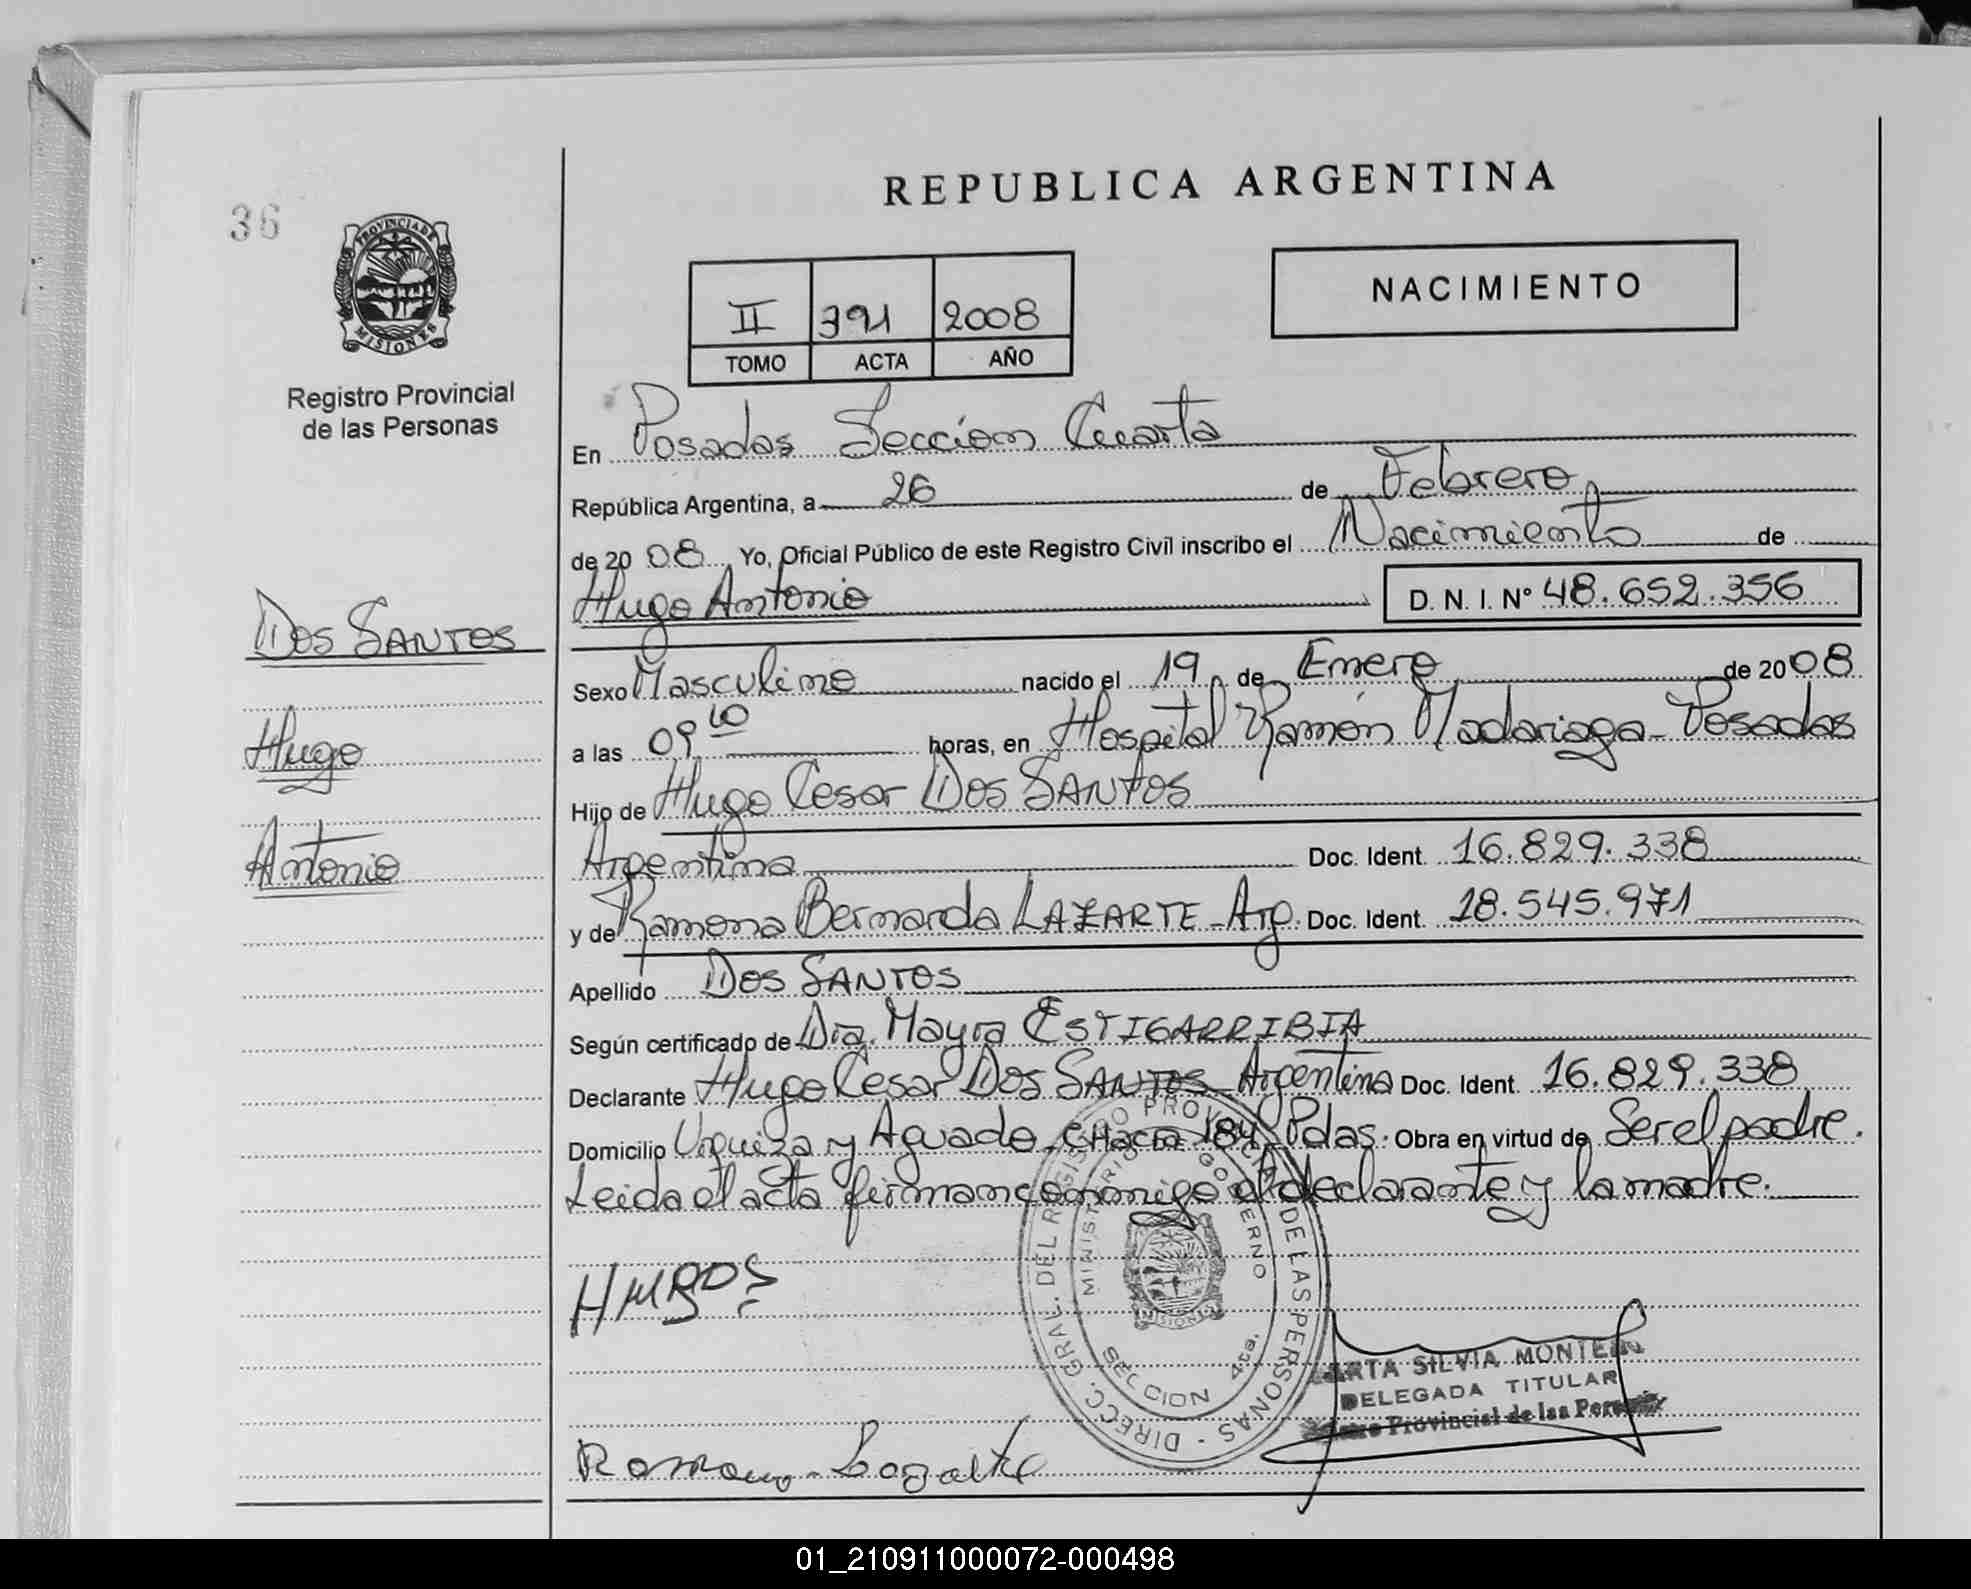 REPUBLICA ARGENTINA
36
PROVINCIA DE
MISIONES
Registro Provincial
de las Personas
NACIMIENTO
II 391 2008
TOMO ACTA AÑO
En Posadas Seccion Cuarta
República Argentina, a 26 de Febrero
de 2008 Yo, Oficial Público de este Registro Civil inscribo el Nacimiento de
Hugo Antonio D. N. I. Nº 48.652.356
Dos SANTOS
Hugo
Antonio
Sexo Masculino nacido el 19 de Enero de 2008
a las 09 10 horas, en Hospital Ramón Madariaga - Posadas
Hijo de Hugo Cesar Dos SANTOS
Argentina Doc. Ident. 16.829.338
y de Ramona Bernarda LAZARTE - Arg. Doc. Ident. 18.545.971
Apellido Dos SANTOS
Según certificado de Dra. Mayra ESTIGARRIBIA
Declarante Hugo Cesar Dos SANTOS Argentina Doc. Ident. 16.829.338
Domicilio Urquiza y Aguado - CHacra 184 Pdas. Obra en virtud de Ser el padre.
Leida el acta firman conmigo el declarante y la madre.
DIRECC. GRAL. DEL REGISTRO PROVINCIAL DE LAS PERSONAS
MINISTERIO GOBIERNO
MISIONES
SECCION 4ta.
SILVIA
DELEGADA TITULAR
Provincial de las
01_210911000072-000498